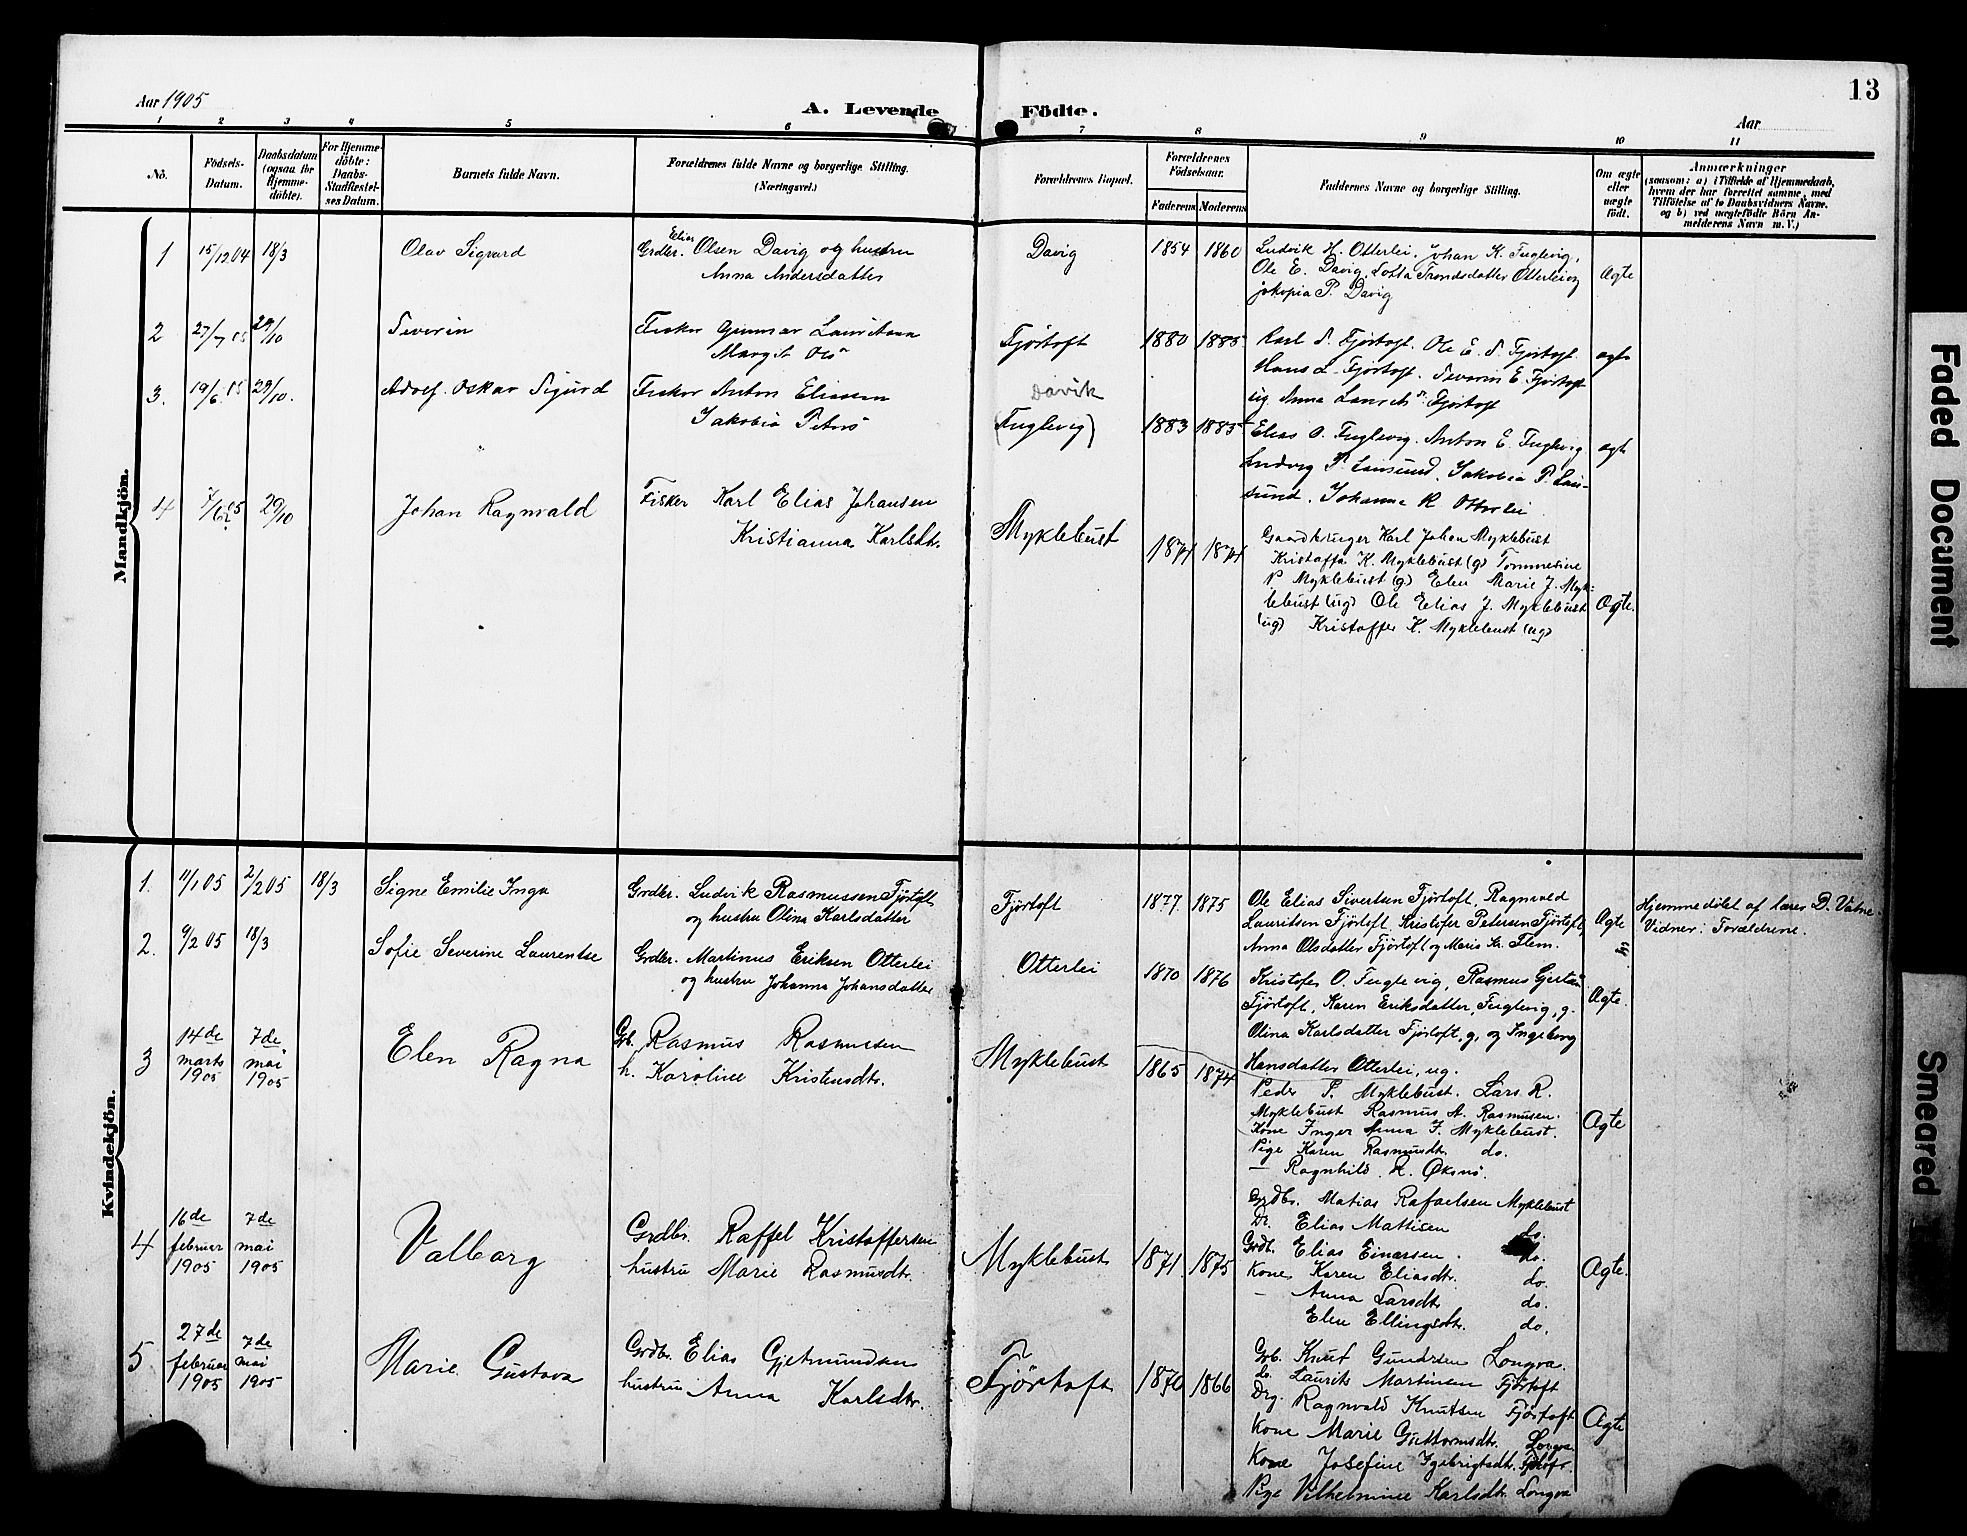 Aar 1905
A. Levende Födte.
13
Aar
1 2 3 4 5 6 7 8 9 10 11
No.
Födsels-Datum.
Daabsdatum (ogsaa for Hjemme-döbte).
For Hjemme-döbte: Daabs-Stadfæstel-ses Datum.
Barnets fulde Navn.
Forældrenes fulde Navne og borgerlige Stilling. (Næringsvei.)
Forældrenes Bopæl.
Forældrenes Födselsaar.
Faderens Moderens
Faddernes Navne og borgerlige Stilling.
Om ægte eller uægte födt.
Anmærkninger
(saasom: a) i Tilfælde af Hjemmedaab,
hvem der har forrettet samme, med
Tilföielse af to Daabsvidners Navne.
og b) ved uægtefödte Börn An-
melderens Navn m. V.)
Mandkjön.
1 15/12 04 18/3 Olav Sigvard
Grdbr. Elias Olsen Davig og hustru
Anna Andersdatter
Davig 1854 1860
Ludvik H. Otterlei, Johan K. Fuglevig,
Ole E. Davig, Lotta Trondsdatter Otterlei og
Jokopia P. Davig
Ægte
2 27/7 05 29/10 Severin
Fisker Gunnar Lauritsen
Margit Ols
Fjörtoft 1880 1885
Karl S. Fjörtoft. Ole E. S. Fjörtoft
Hans Fjörtoft. Severin E. Fjörtoft
ug. Anna Laurits Fjörtoft
ægte
3. 19/6 05 29/10. Adolf Oskar Sigurd
Fisker Anton Eliassen
Jakobia Peters
Davik
(Fuglevig) 1883 1885
Elias O. Fuglevig. Anton E. Fuglevig
Ludvig P. Lausund. Jakobia P. Lau-
sund. Johanna R. Otterlei
ægte
4 7/6 05 29/10 Johan Ragnvald
Fisker Karl Elias Johansen
Kristianna Karlsdtr.
Myklebust 1871 1871
Gaardbruger Karl Johan Myklebust
Kristoffa K. Myklebust (g) Tommesine
P Myklebust (g) Elen Marie J. Myk-
lebust (ug) Ole Elias J. Myklebust
(ug) Kristoffer K. Myklebust (ug)
Ægte.
Kvindekjön.
1. 11/1 05 2/2 05 18/3 Signe Emilie Inga
Grdbr. Ludvik Rasmussen Fjörtoft
og hustru Olina Karlsdatter
Fjörtoft 1877. 1875
Ole Elias Sivertsen Fjörtoft, Ragnvald
Lauritsen Fjörtoft, Kristofer Petersen Fjörtoft,
Anna Olsdatter Fjörtoft og Maria Kr. Flem.
Ægte
Hjemmedöbt af lærer D. Vatne.
Vidner: Forældrene.
2. 9/2 05 18/3 Sofie Severine Laurentse
Grdbr. Martinus Eriksen Otterlei
og hustru Johanna Johansdatter
Otterlei 1870 1876
Kristofer O. Fuglevig, Rasmus Gjertsen
Fjörtoft, Karen Eriksdatter, Fuglevig, g.
Olina Karlsdatter Fjörtoft, g, og Ingeborg
Hansdatter Otterlei, ug.
Ægte.
3 14de marts 1905 7de mai 1905 Elen Ragna
Grb. Rasmus Rasmussen
h. Karoline Kristensdtr.
Myklebust 1865 1874
Peder P. Myklebust. Lars R.
Myklebust Rasmus A. Rasmusen.
Kone Inger Anna J. Myklebust.
Pige Karen Rasmusdtr. do.
— Ragnhild R. Öksnö.
Ægte
4 16de februar 1905 7de mai 1905 Valborg
Grdbr. Raffel Kristoffersen
hustru Marie Rasmusdtr.
Myklebust 1871. 1875
Grdbr. Matias Rafaelsen Myklebust
Dr. Elias Mattisen do.
Grdb. Elias Einarsen. do.
Kone Karen Eliasdtr. do.
— Anna Larsdtr. do.
Elen Ellingsdtr. do.
Ægte.
5 27de februar 1905 7de mai 1905 Marie Gustava
Grdbr. Elias Gjetmundsen
hustru Anna Karlsdtr.
Fjörtoft 1870 1866
Grb. Knut Gundersen Longva.
Do. Laurits Martinsen Fjörtoft
Drg. Ragnvald Knutsen Fjörtoft
Kone Marie Guttormsdtr. Longva
Kone Josefine Ingebrigtsdtr. Fjörtoft.
Pige Vilhelmine Karlsdtr. Longva
Ægte
Faded Document
Smeared